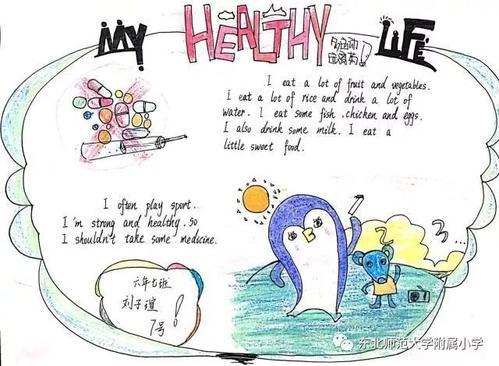 MY HEALTHY LIFE
I eat a lot of fruit and vegetables.
I eat a lot of rice and drink a lot of
water. I eat some fish. chicken and eggs.
I also drink some milk. I eat a
little sweet food.
I often play sport.
I'm strong and healthy. so
I shouldn't take some medscine.
六年七班
刘子瑄
7号!
1
2
3...
东北师范大学附属小学